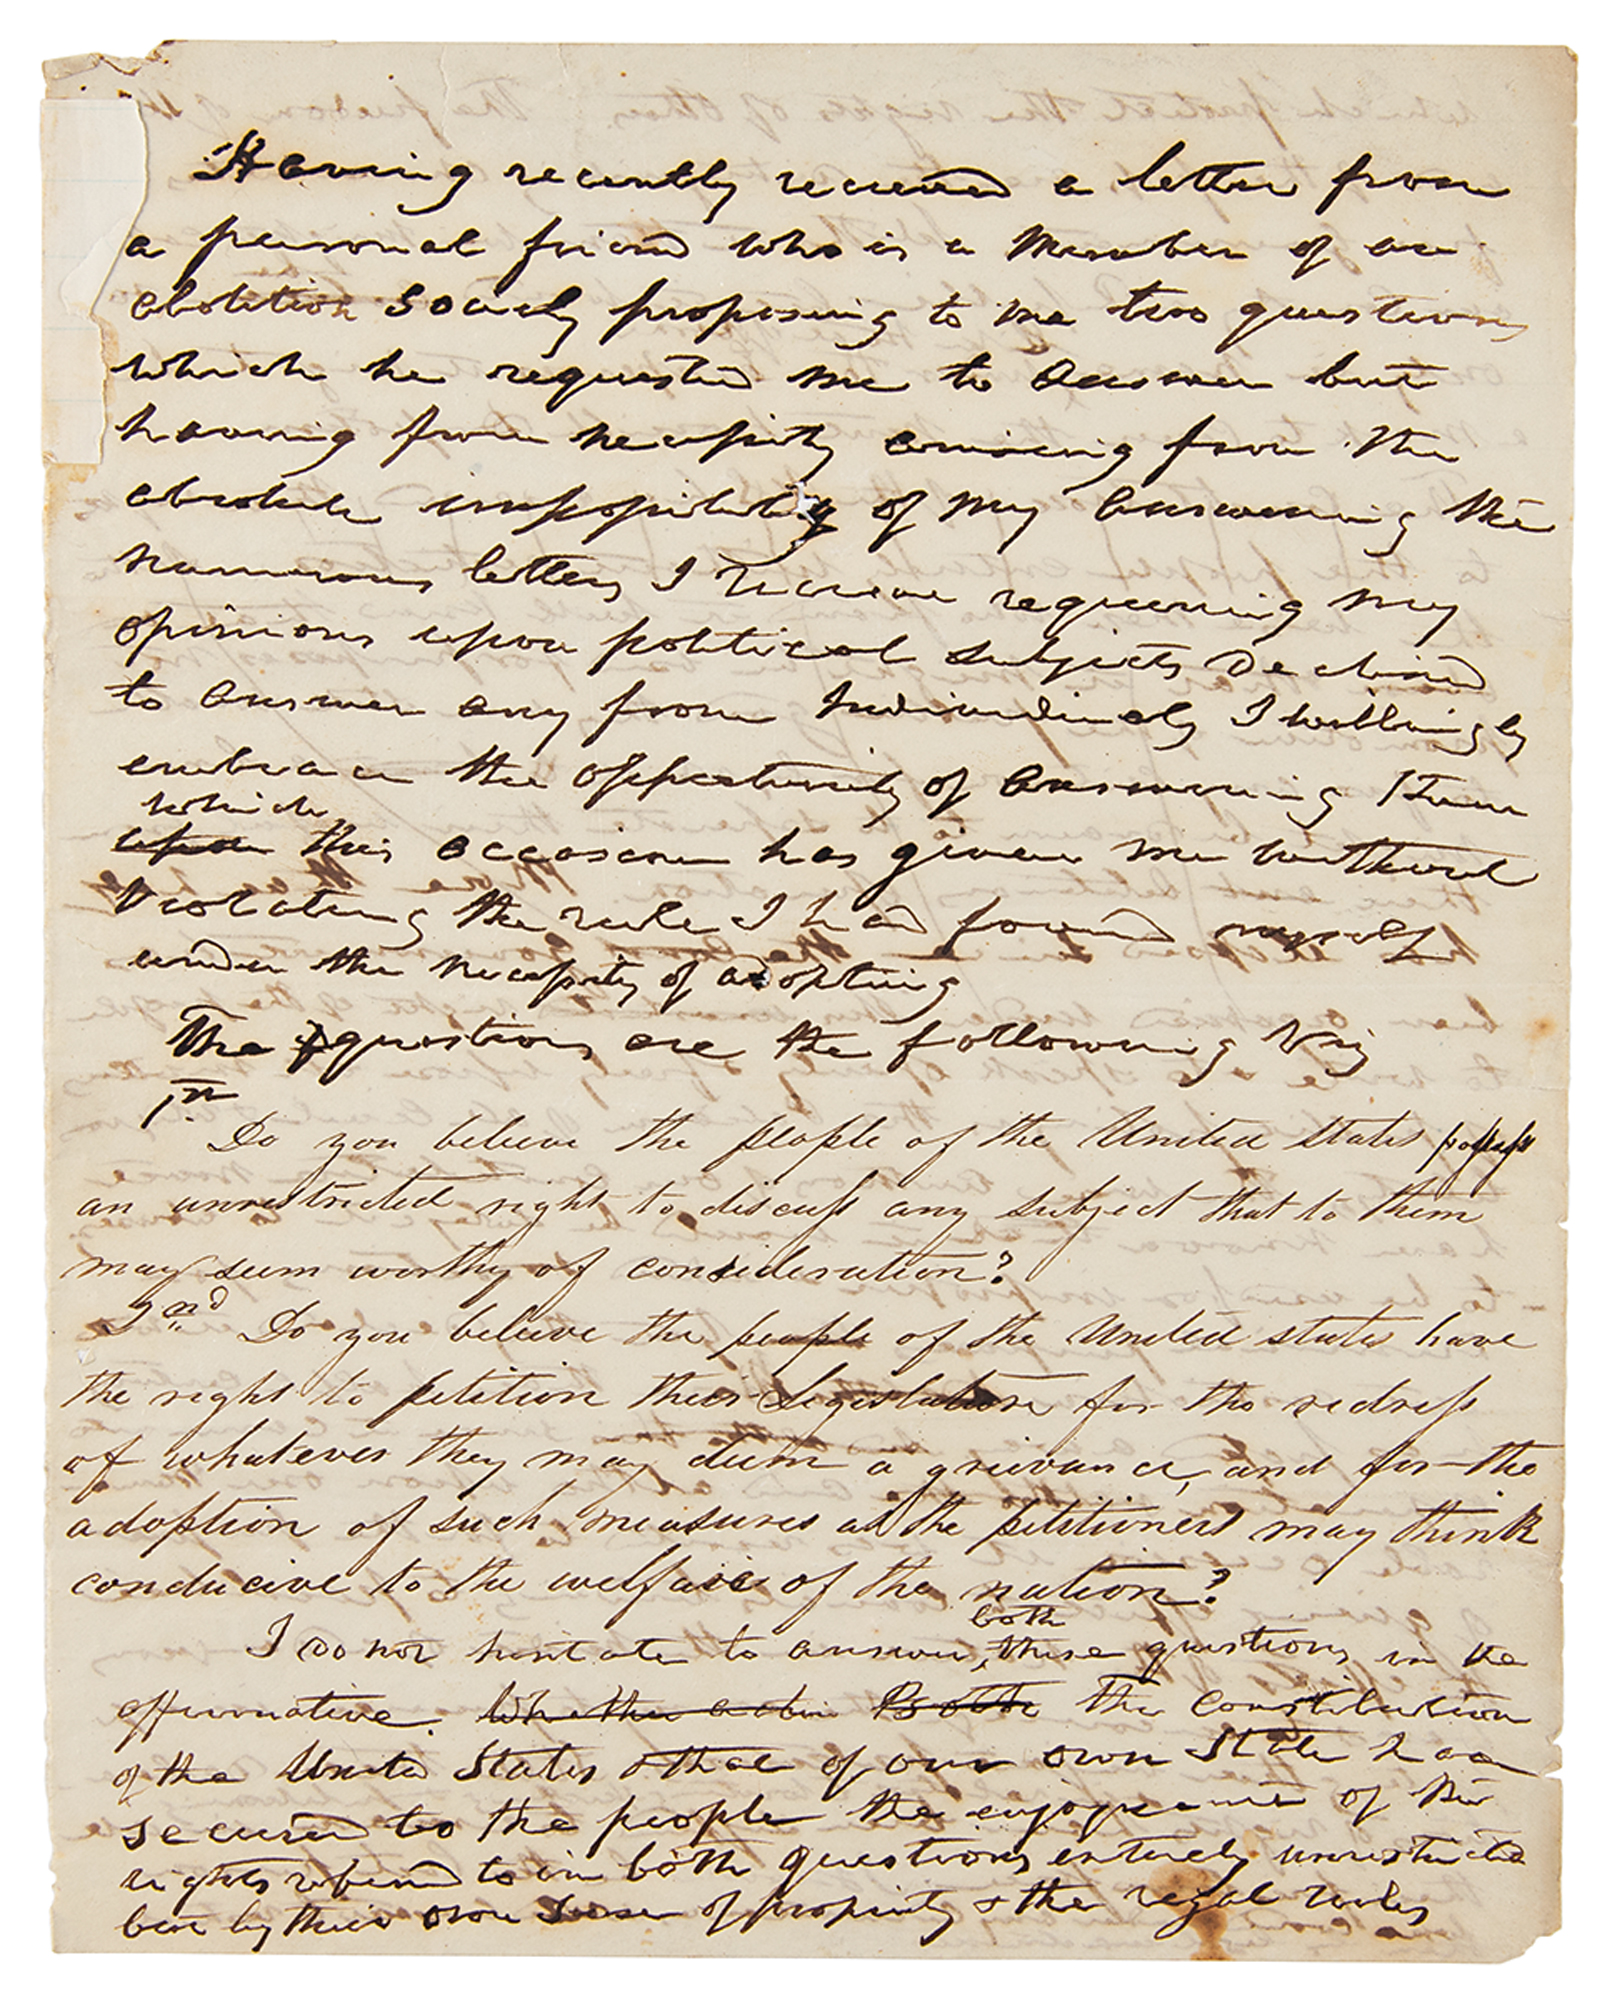 Having recently received a letter from
a personal friend who is a Member of an
abolition Society proposing to me two questions
which he requested me to answer but
having from necessity arising from the
absolute impossibility of my answering the
numerous letters I receive requiring my
opinions upon political subjects declined
to answer any from Individuals I willingly
embrace the opportunity of answering them
which
upon this occasion has given me without
violating the rule I had found myself
under the necessity of adopting
The questions are the following Viz
1st
Do you believe the people of the United States possess
an unrestricted right to discuss any subject that to them
may seem worthy of consideration?
2nd Do you believe the people of the United States have
the right to petition their Legislature for the redress
of whatever they may deem a grievance, and for the
adoption of such measures as the petitioners may think
conducive to the welfare of the nation?
both
I do not hesitate to answer, these questions in the
affirmative. Whether Both The Constitution
of the United States & that of our own State have
secured to the people the enjoyment of the
rights referred to in both questions entirely unrestricted
but by their own sense of propriety & the legal rules